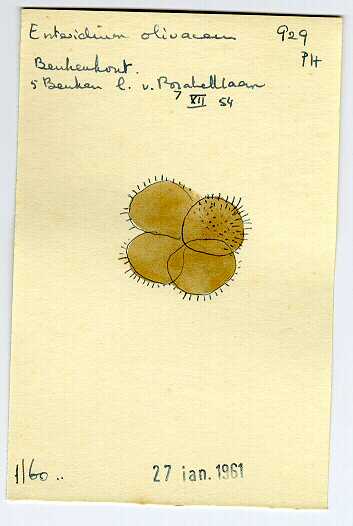 Enteridium olivaceum 929
PH
Beukenhout.
5 Beuken l. v.
7 XII 54
1/60 ..
27 jan. 1961